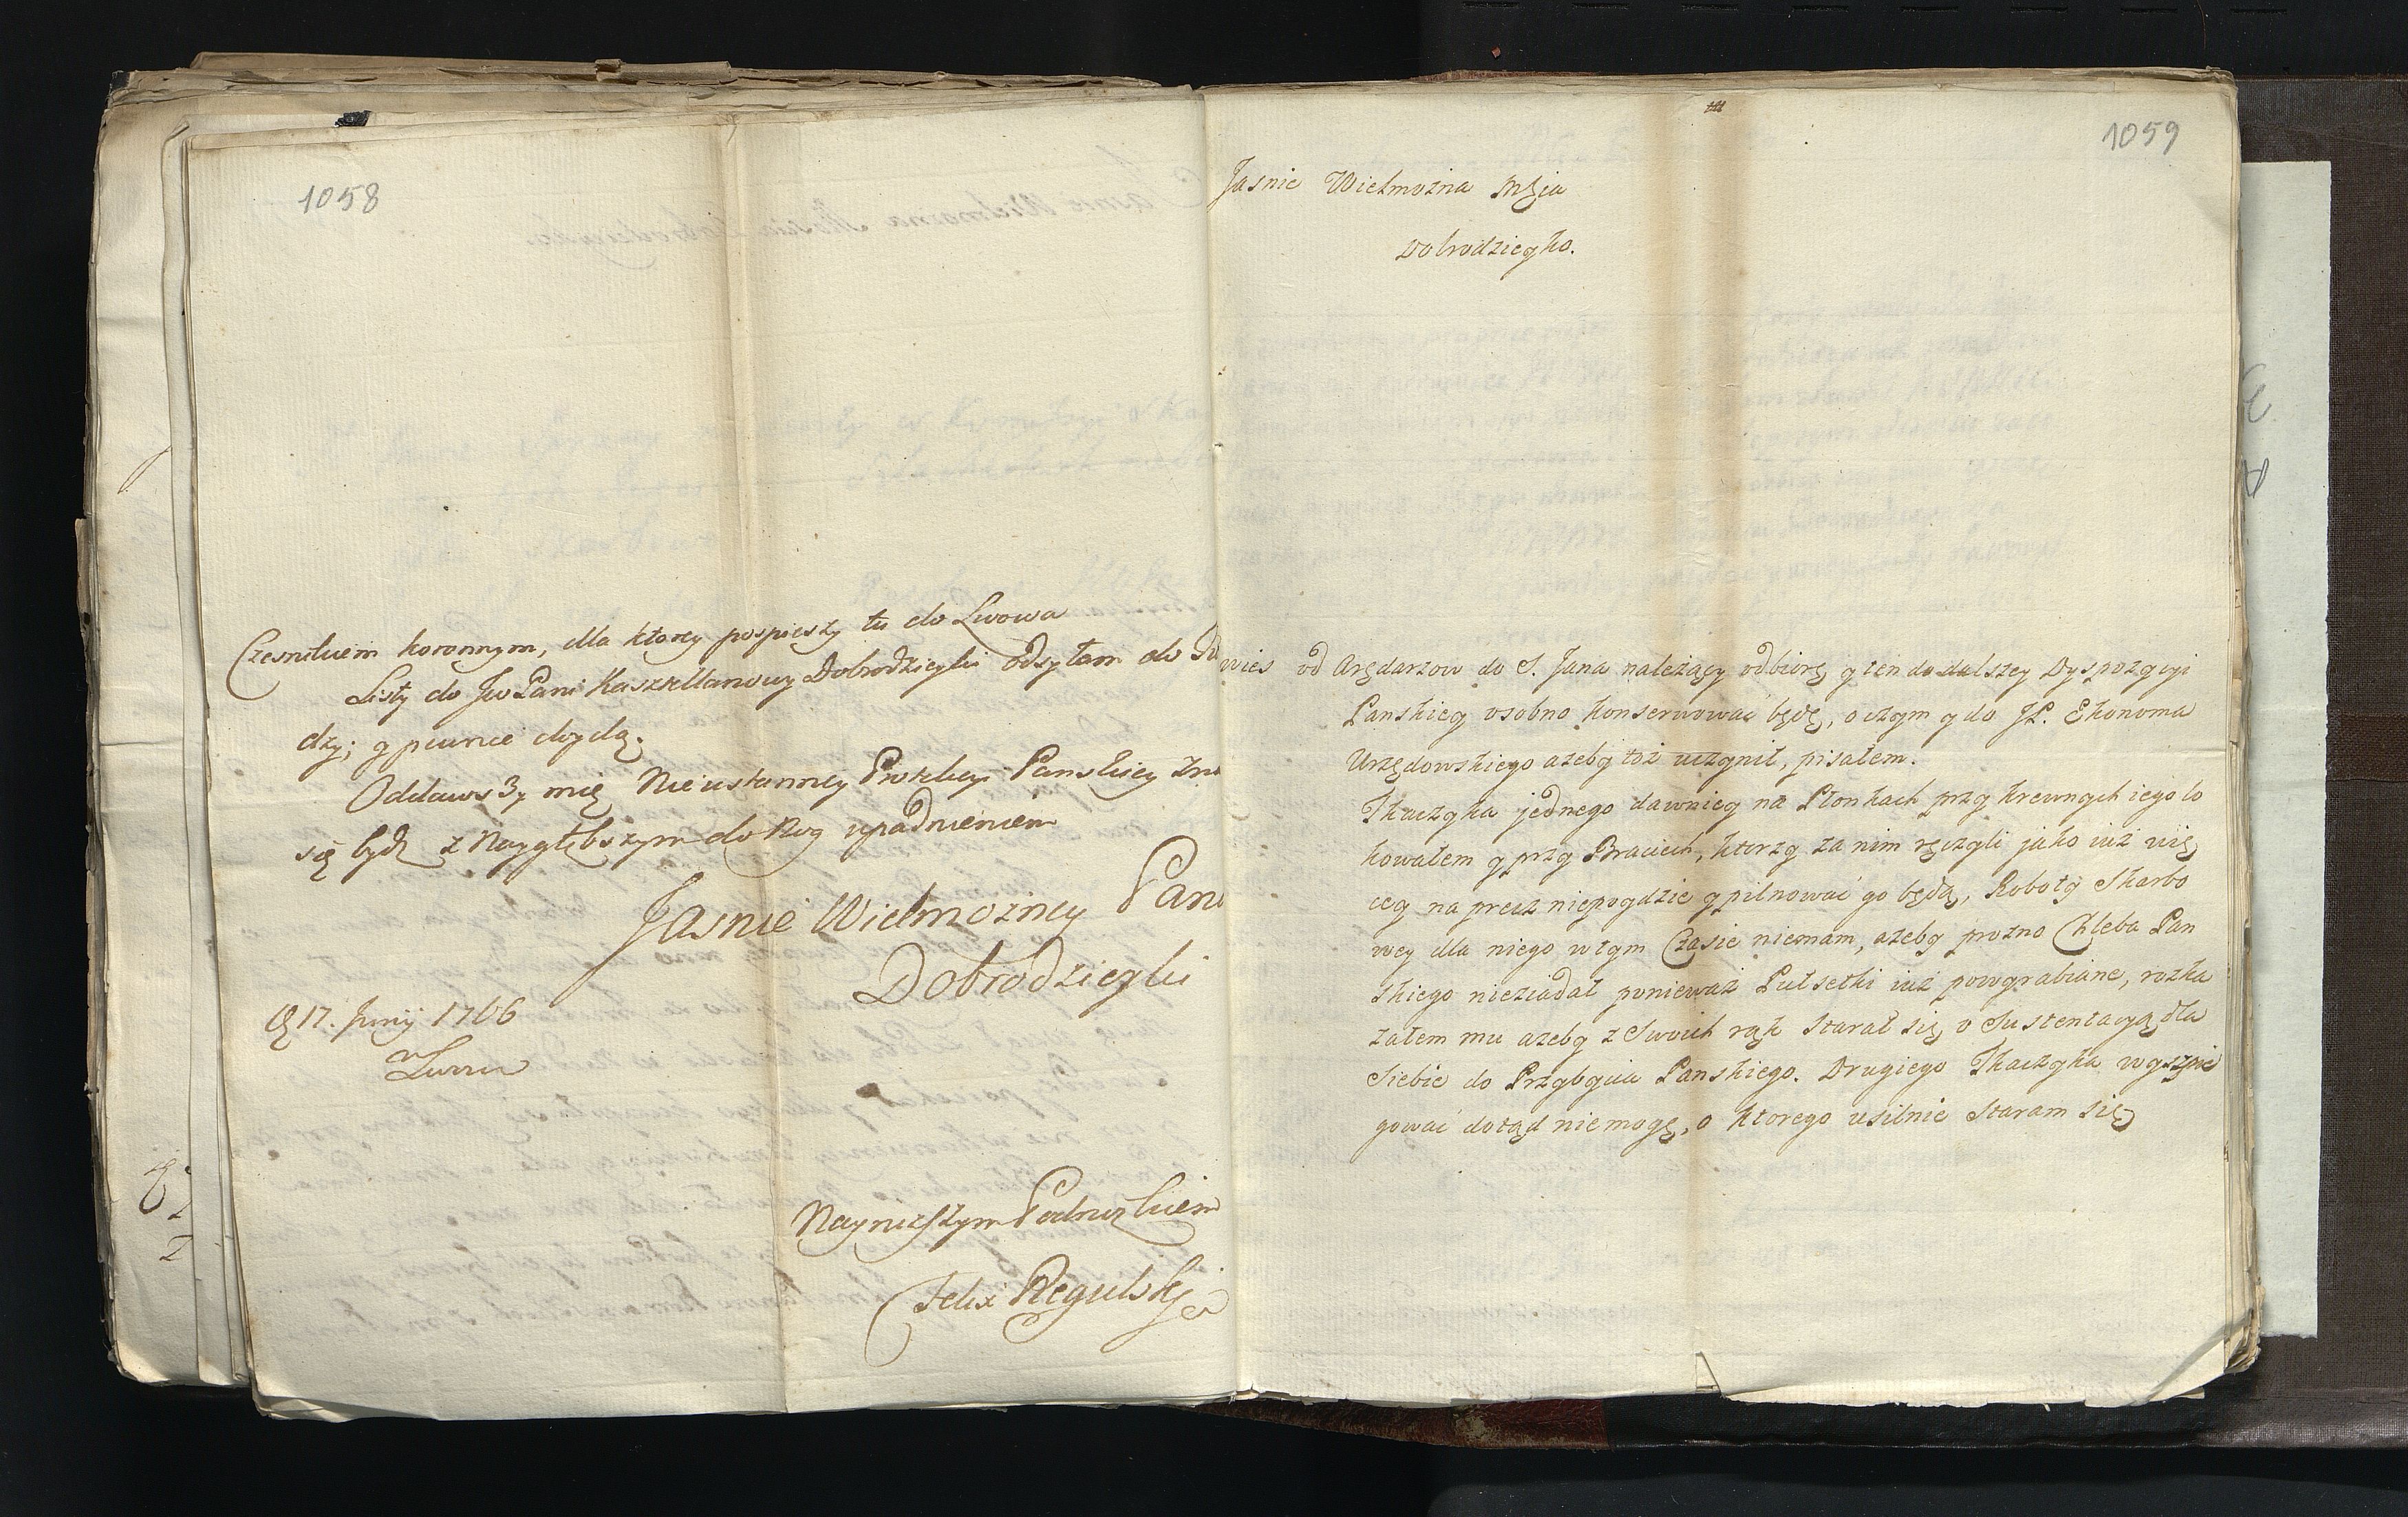 1058
Czesnikiem koronnym, dla ktorey pospieszy tu do Lwowa
Listy do Jw Pani Kasztellanowy Dobrodzieyki odsyłam do
dzy; y pewnie doydą.
Oddawszy mię Nieustanney Protekcyi Panskiey
się bydź z Naygłębszym do Nog upadnieniem
Jasnie Wielmozney Pani
Dobrodzieyki
17. Junij 1766
Naynizszym Podnozkiem
Felix Regulski
1059
Jasnie Wielmozna Mscia
Dobrodzieyko.
od Arędarzow do S. Jana należący odbiorę y ten do dalszey Dyspozycyi
Panskiey osobno konserwować będę, o czym y do JP. Ekonoma
Urzędowskiego azeby toż uczynił, pisałem.
Tkaczyka jednego dawniey na Płonkach przy krewnych iego lo
kowałem y przy Braciech, ktorzy za nim ręczyli jako iuż wię
cey na precz niepoydzie y pilnować go będą, Roboty Skarbo
wey dla niego w tym Czasie niemam, azeby prozno Chleba Pan
skiego nieziadał ponieważ Pułsetki iuż powyrabiane, rozka
załem mu azeby z Swoich rąk starał się o Sustentacyą dla
Siebie do Przybycia Panskiego. Drugiego Tkaczyka wyszpie
gować dotąd niemogę, o ktorego usilnie staram się